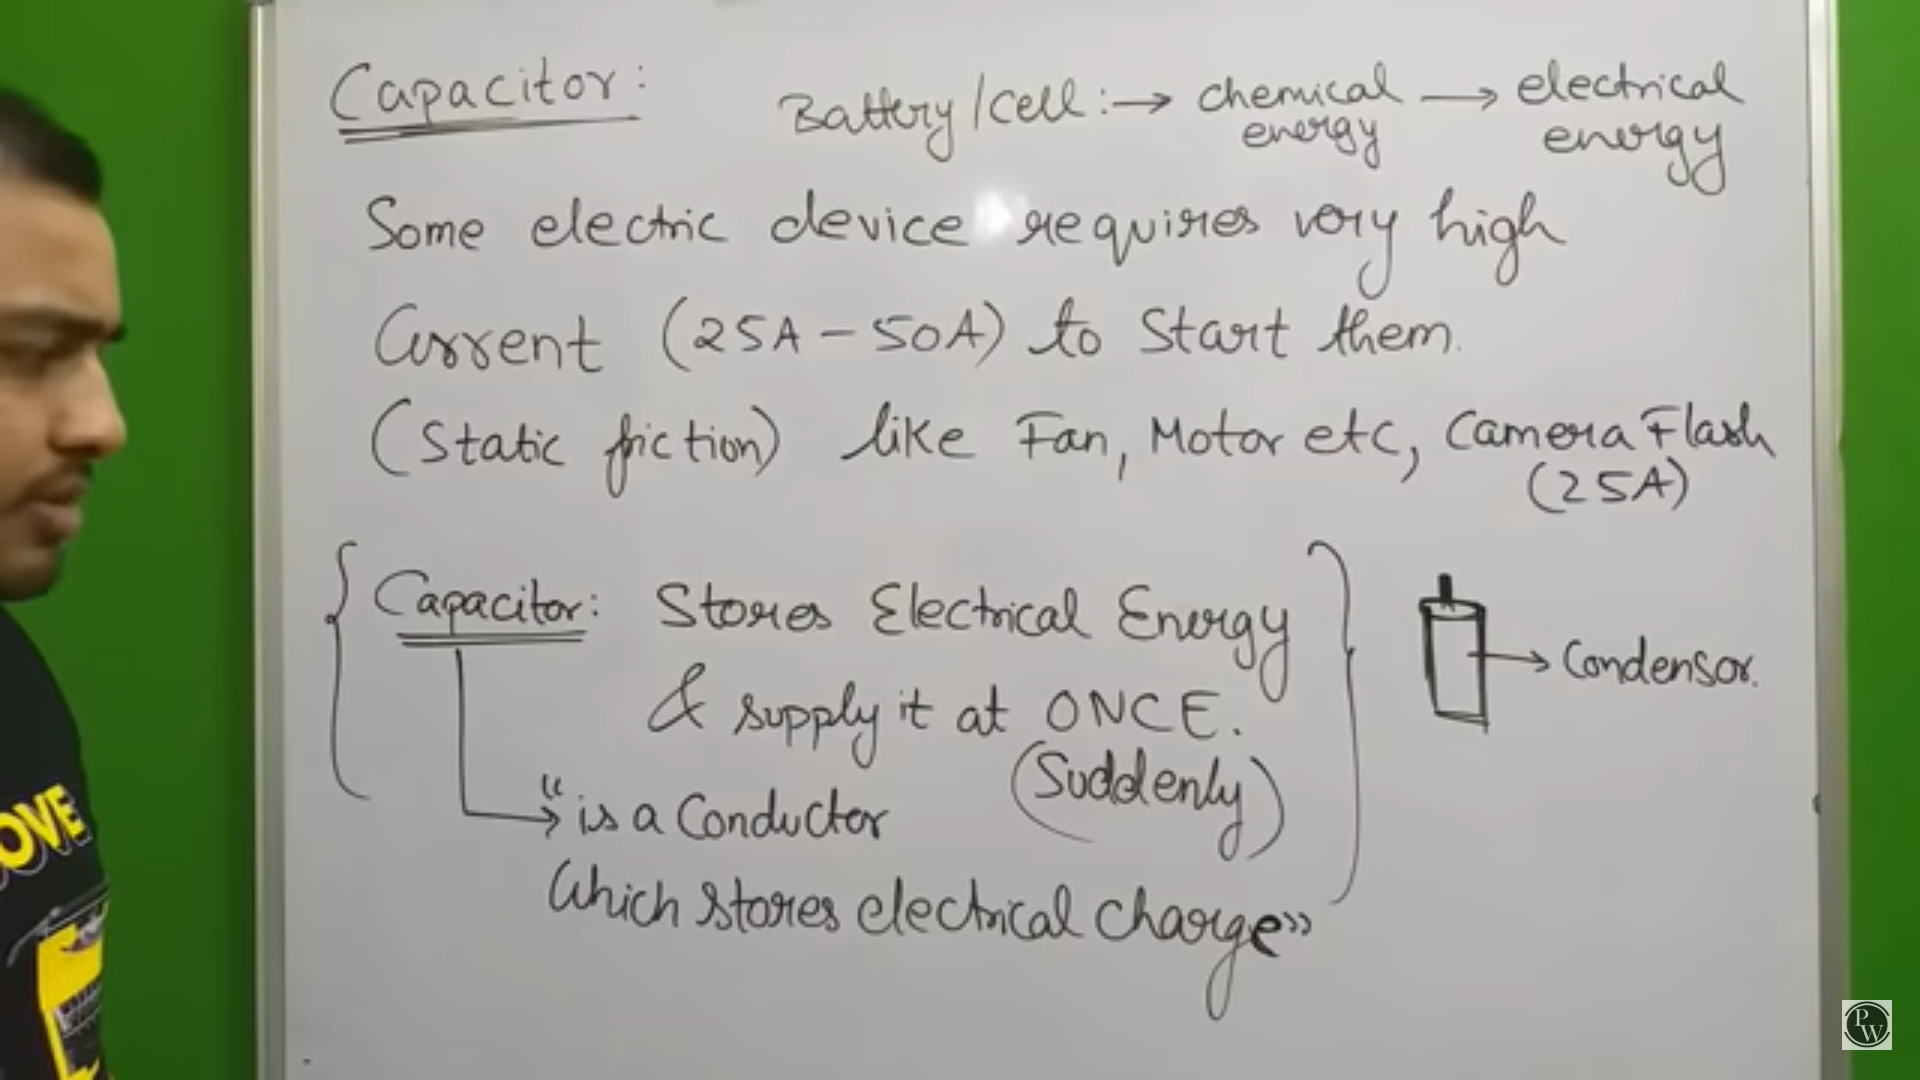 Capacitor:
Battery/cell:→ chemical energy → electrical energy
Some electric device requires very high
Current (25A - 50A) to Start them.
(Static friction) like Fan, Motor etc, Camera Flash
(25A)
Capacitor: Stores Electrical Energy
& supply it at ONCE.
(Suddenly)
→ Condensor.
→ "is a Conductor
Which stores electrical charge"
OVE
PW